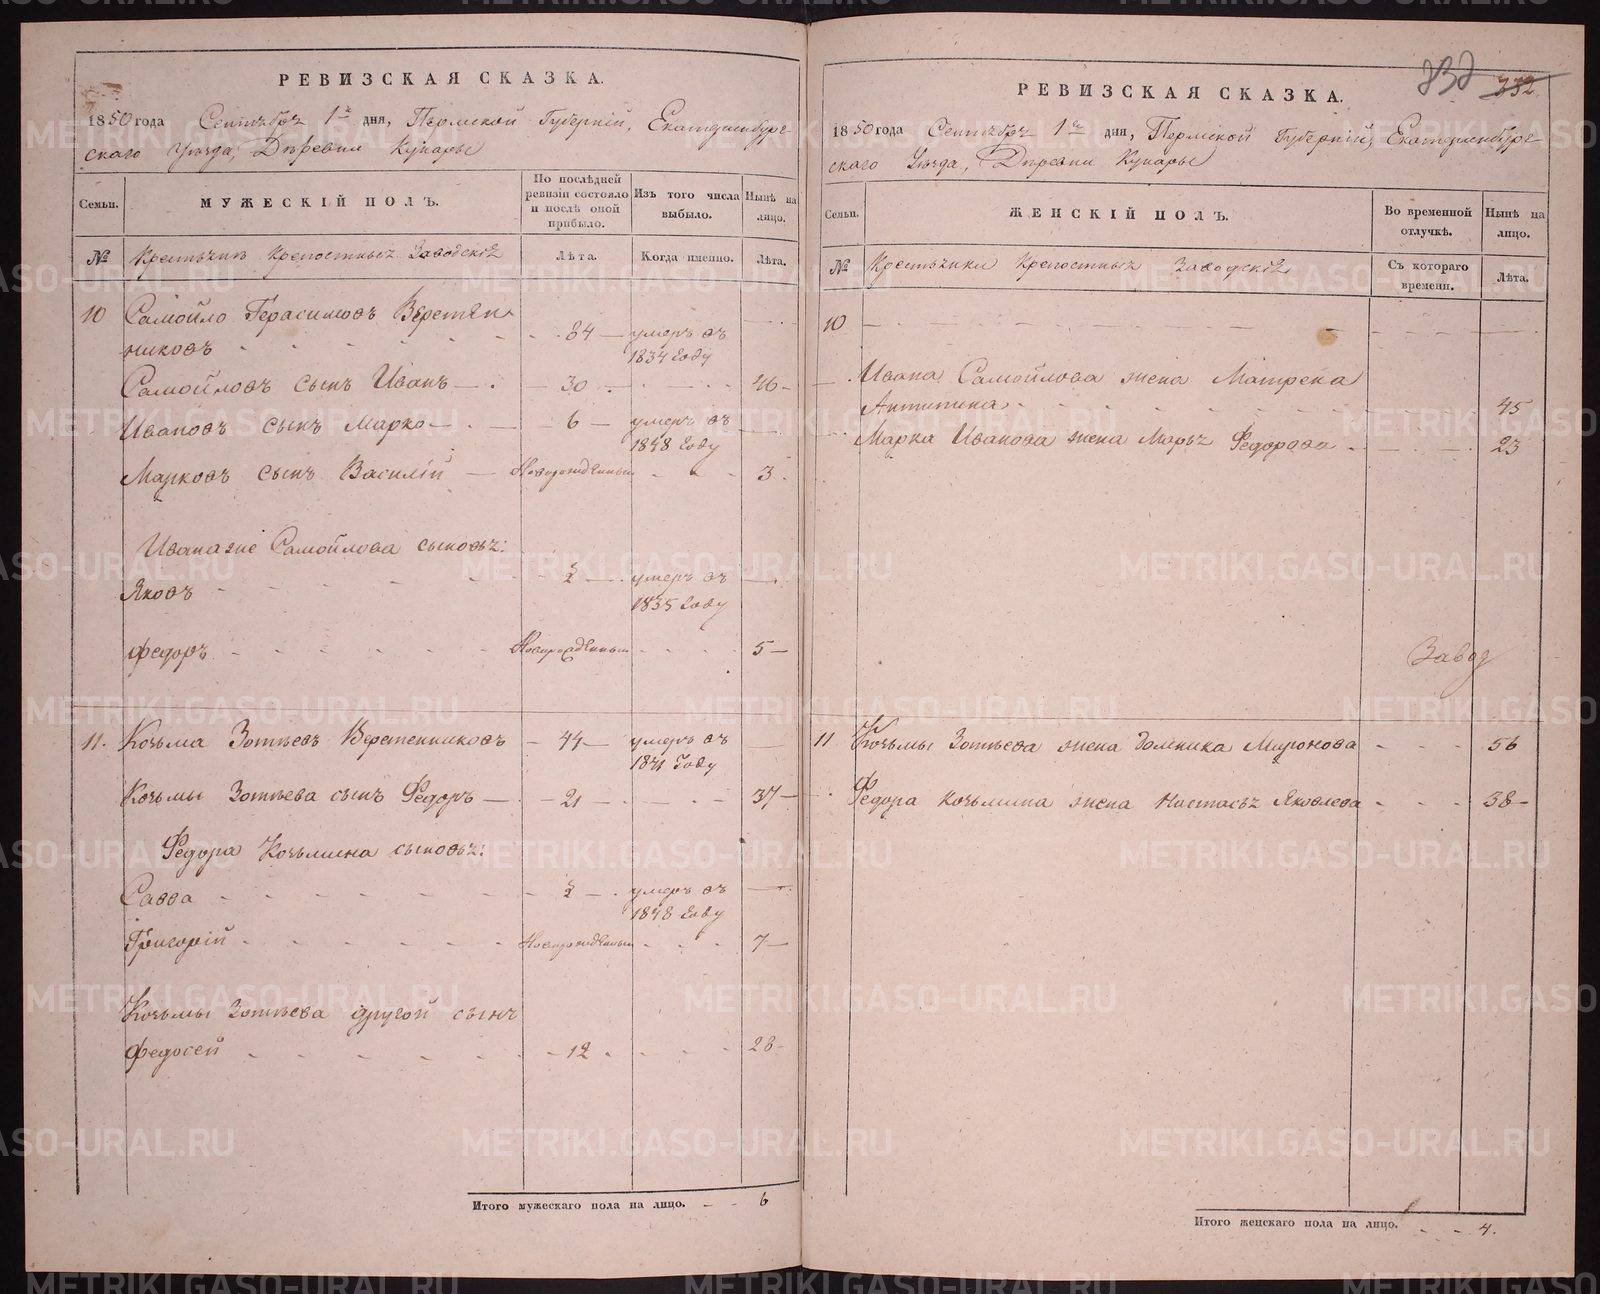 РЕВИЗСКАЯ СКАЗКА.
1850 года Сентября 1го дня, Пермской Губернiи, Екатеринбург-
скаго Уезда, Деревни Кунары
Семьи.
МУЖЕСКIЙ ПОЛЪ.
По послѣдней ревизiи состояло и послѣ оной прибыло.
Изъ того числа выбыло.
Нынѣ на лицо.
№ Крестьянъ Крепостныхъ Заводскихъ
Лѣта.
Когда именно.
Лѣта.
10 Самойло Герасимовъ Веретен-
никовъ - 84 - умеръ въ
1834 году
Самойловъ сынъ Иванъ - 30 - 46 -
Ивановъ сынъ Марко - 6 - умеръ въ
1848 году
Марковъ сынъ Василiй - Новорожденный - 3 -
Иванаже Самойлова сыновья:
Яковъ - ½ - умеръ въ
1835 году
Федоръ - Новорожденный - 5 -
11. Козьма Зотѣевъ Веретенниковъ - 44 - умеръ въ
1841 Году
Козьмы Зотѣева сынъ Федоръ - 21 - 37 -
Федора Козьмина сыновья:
Савва - ½ - умеръ въ
1848 году
Григорiй - Новорожденный - 7 -
Козьмы Зотѣева другой сынъ
Федосей - 12 - 28 -
Итого мужескаго пола на лицо. - - 6
332
РЕВИЗСКАЯ СКАЗКА.
1850 года Сентября 1го дня, Пермской Губернiи, Екатеринбург-
скаго Уезда, Деревни Кунары
Семьи.
ЖЕНСКIЙ ПОЛЪ.
Во временной отлучкѣ.
Нынѣ на лицо.
№ Крестьянки Крепостныхъ Заводскихъ
Съ котораго времени.
Лѣта.
10
Ивана Самойлова жена Матрена
Антипина - 45
Марка Иванова жена Марья Федорова - 23
Завод
11 Козьмы Зотѣева жена Домника Миронова - 56
Федора Козьмина жена Настасья Яковлева - 38 -
Итого женскаго пола на лицо. - - 4.
METRIKI.GASO-URAL.RU